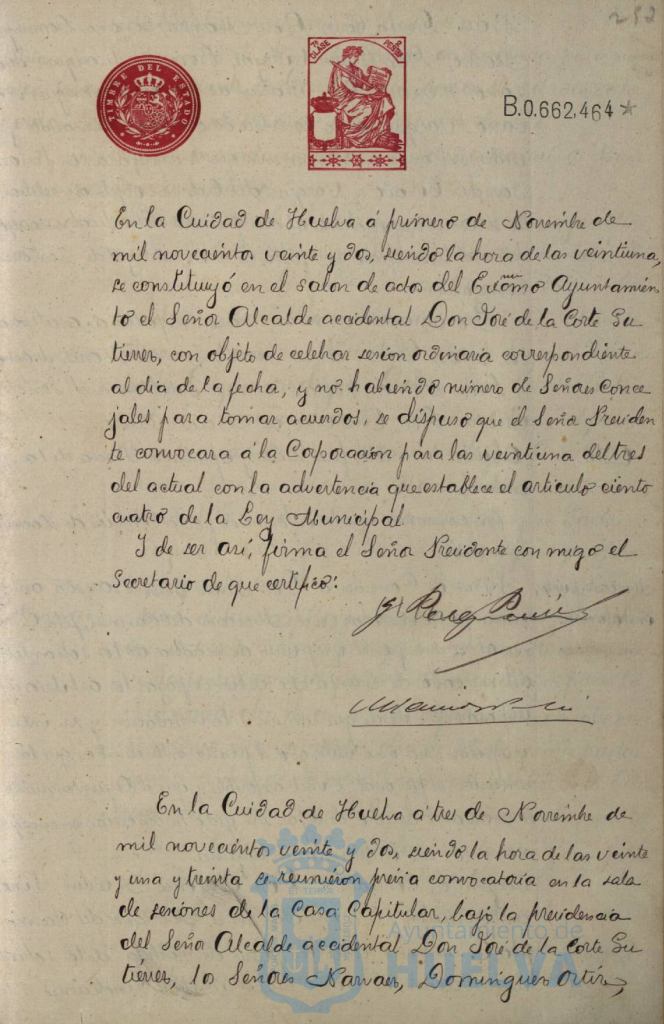 252
TIMBRE DEL ESTADO
7ª CLASE
2 PESETAS
B.0.662,464 *
En la Cuidad de Huelva á primero de Noviembre de
mil novecientos veinte y dos, siendo la hora de las veintiuna,
se constituyó en el salon de actos del Excmo Ayuntamien
to el Señor Alcalde accidental Don José de la Corte Gu
tierrez, con objeto de celebrar sesion ordinaria correspondiente
al dia de la fecha, y no habiendo numero de Señores Conce
jales para tomar acuerdos, se dispuso que el Señor Presiden
te convocara á la Corporación para las veintiuna del tres
del actual con la advertencia que establece el articulo ciento
cuatro de la Ley Municipal.
Y de ser así, firma el Señor Presidente con migo el
Secretario de que certifico:
En la Cuidad de Huelva á tres de Noviembre de
mil novecientos veinte y dos, siendo la hora de las veinte
y una y treinta se reunieron previa convocatoria en la sala
de sesiones de la Casa Capitular, bajo la presidencia
del Señor Alcalde accidental Don José de la Corte Gu
tiérrez, los Señores Narvaez, Dominguez Ortiz,
Ayuntamiento de
HUELVA